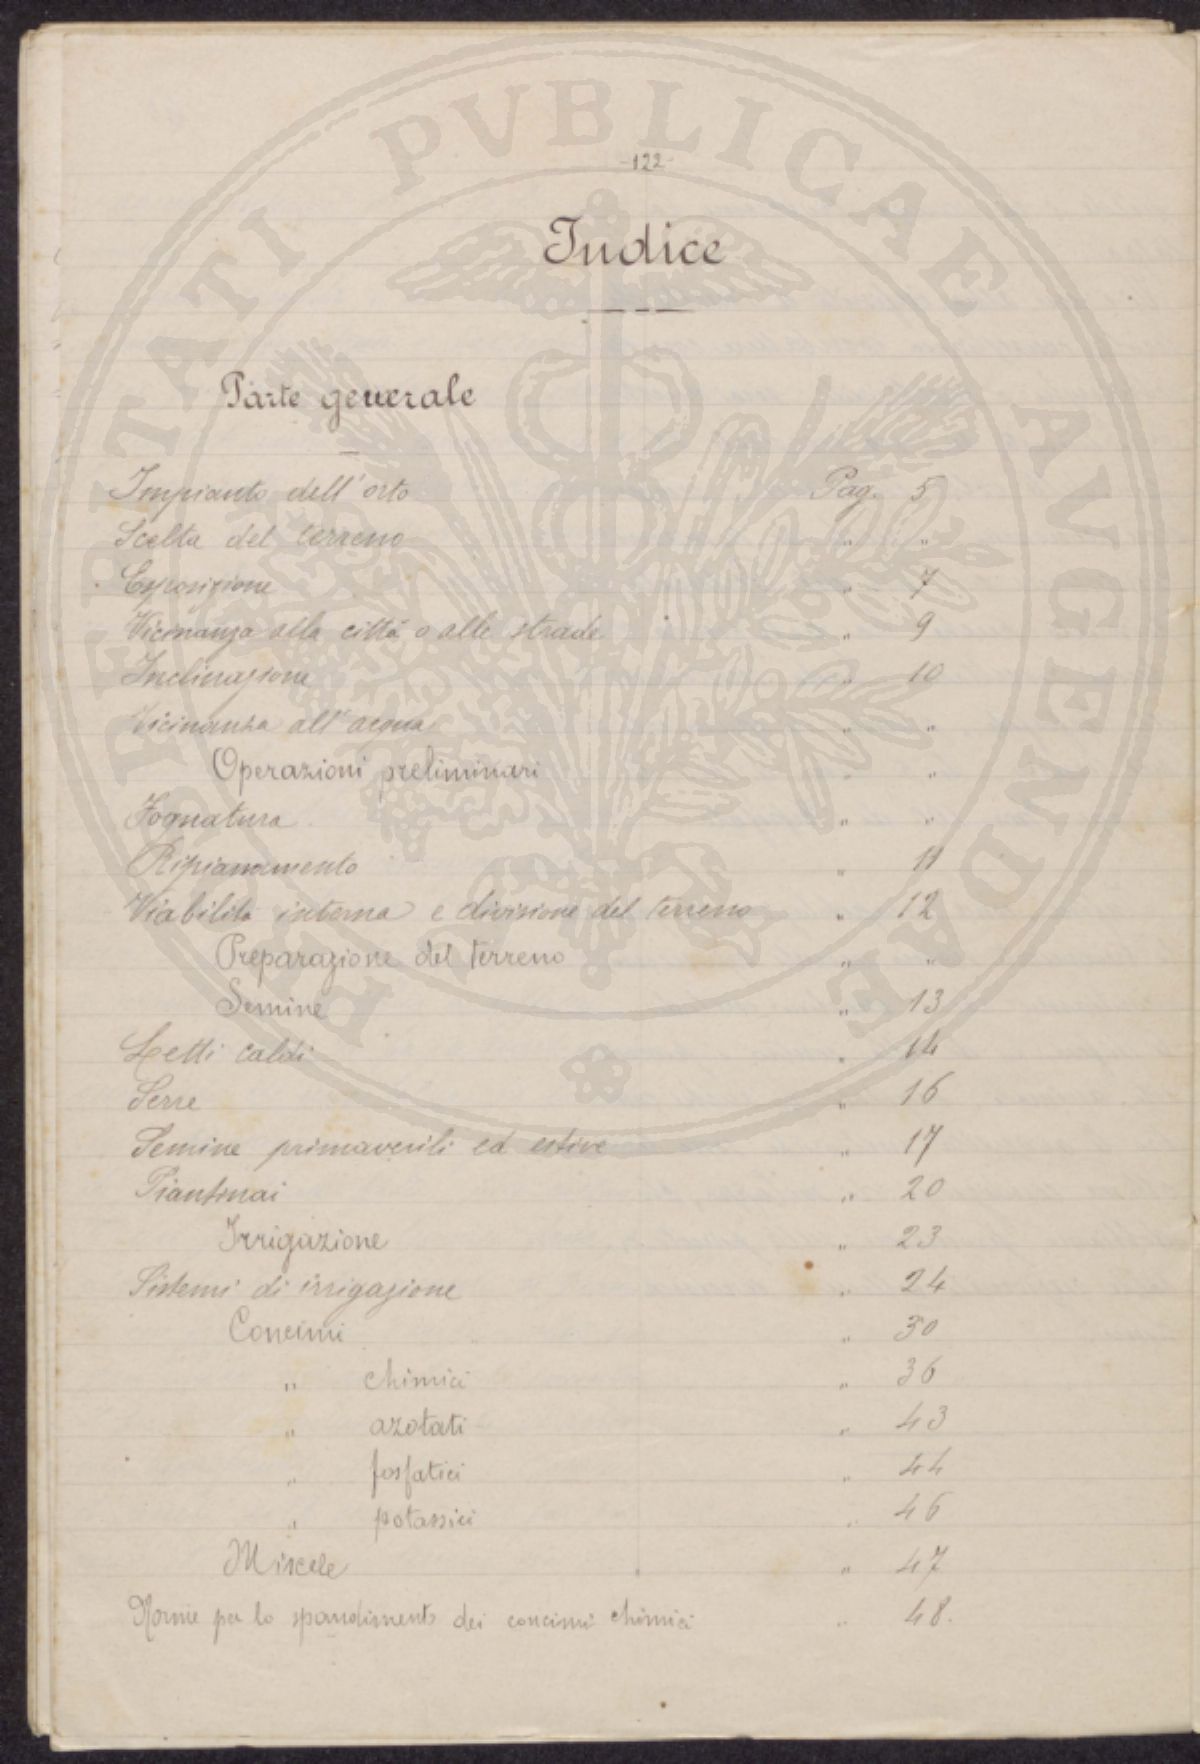 -122-
Indice
Parte generale
Impianto dell'orto Pag. 5
Scelta del terreno " "
Esposizione " 7
Vicinanza alla città o alle strade " 9
Inclinazione " 10
Vicinanza all'acqua " "
Operazioni preliminari " "
Fognatura " "
Ripianamento " 11
Viabilità interna e divisione del terreno " 12
Preparazione del terreno " "
Semine " 13
Letti caldi " 14
Serre " 16
Semine primaverili ed estive " 17
Piantonai " 20
Irrigazione " 23
Sistemi di irrigazione " 24
Concimi " 30
" chimici " 36
" azotati " 43
" fosfatici " 44
" potassici " 46
Miscele " 47
Norme per lo spandimento dei concimi chimici " 48.
PROSPERITATI PVBLICAE AVGENDAE